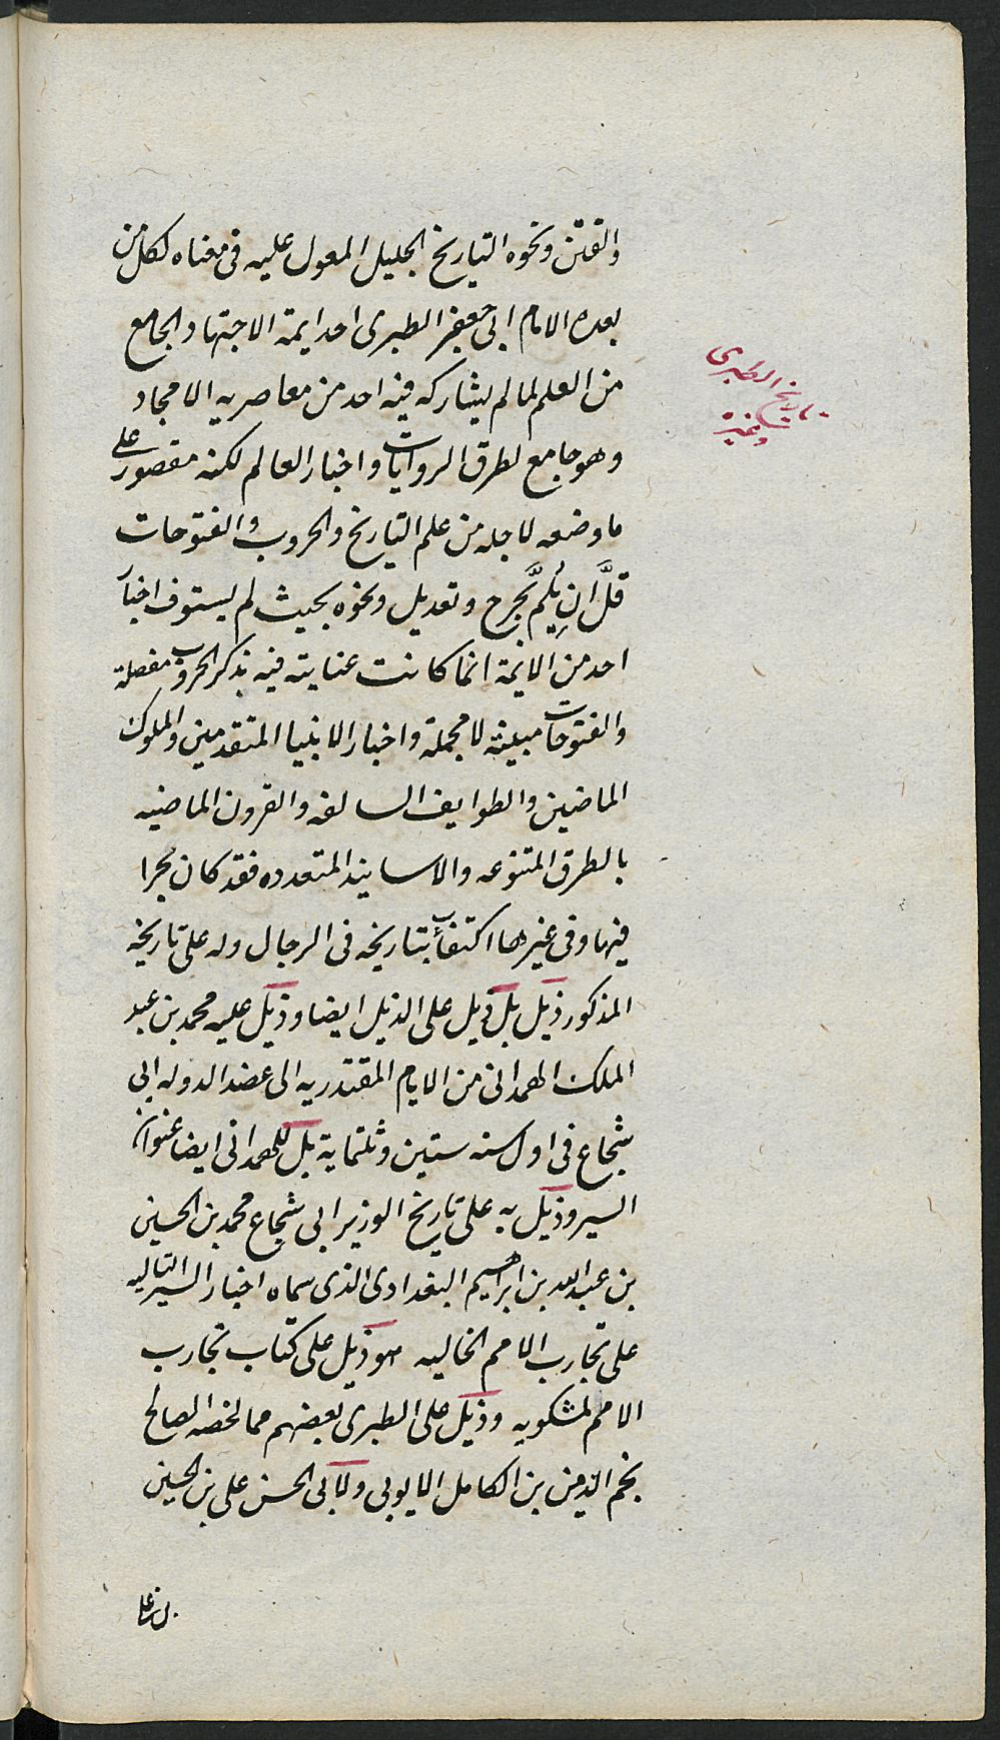 والفتن ونحوه التاريخ الجليل المعول عليه فى معناه لكل من
بعده الامام ابى جعفر الطبرى احد ايمة الاجتهاد الجامع
من العلم لما لم يشاركه فيه احد من معاصريه الامجاد
وهو جامع لطرق الروايات واخبار العالم لكنه مقصور على
ما وضعه لاجله من علم التاريخ والحروب والفتوحات
قلَّ ان يلم بجرح وتعديل ونحوه بحيث لم يستوف اخبار
احد من الايمة انما كانت عنايته فيه بذكر الحروب مفصلة
والفتوحات مبينة لا مجملة واخبار الانبيا المتقدمين والملوك
الماضين والطوايف السالفه والقرون الماضيه
بالطرق المتنوعه والاسانيد المتعدده فقد كان بحرا
فيها وفى غيرها اكتفاء بتاريخه فى الرجال وله على تاريخه
المذكور ذيل بل ذيل على الذيل ايضا وذيل عليه محمد بن عبد
الملك الهمدانى من الايام المقتدريه الى عضد الدوله ابى
شجاع فى اول سنه ستين وثلثماية بل للهمدانى ايضا عنوان
السير وذيل به على تاريخ الوزير ابى شجاع محمد بن الحسين
بن عبد الله بن ابراهيم البغدادى الذى سماه اخبار السير التاليه
على تجارب الامم الخاليه هو ذيل على كتاب تجارب
الامم لمشكويه وذيل على الطبرى بعضهم مما لخصه الصالح
نجم الدين بن الكامل الايوبى ولابى الحسن على بن الحسين
تاريخ الطبرى
وغيره
بن على